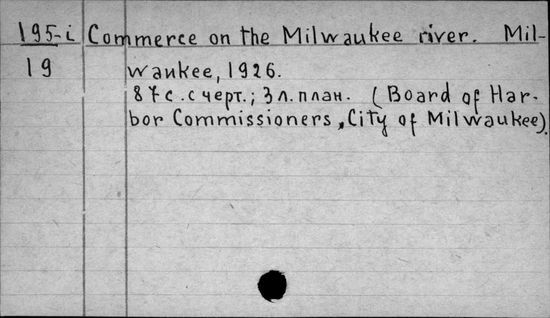 195-i Commerce on the Milwaukee river. Mil-
19 waukee, 1926.
87 с. с черт.; 3 л. план. (Board of Har-
bor Commissioners, City of Milwaukee).